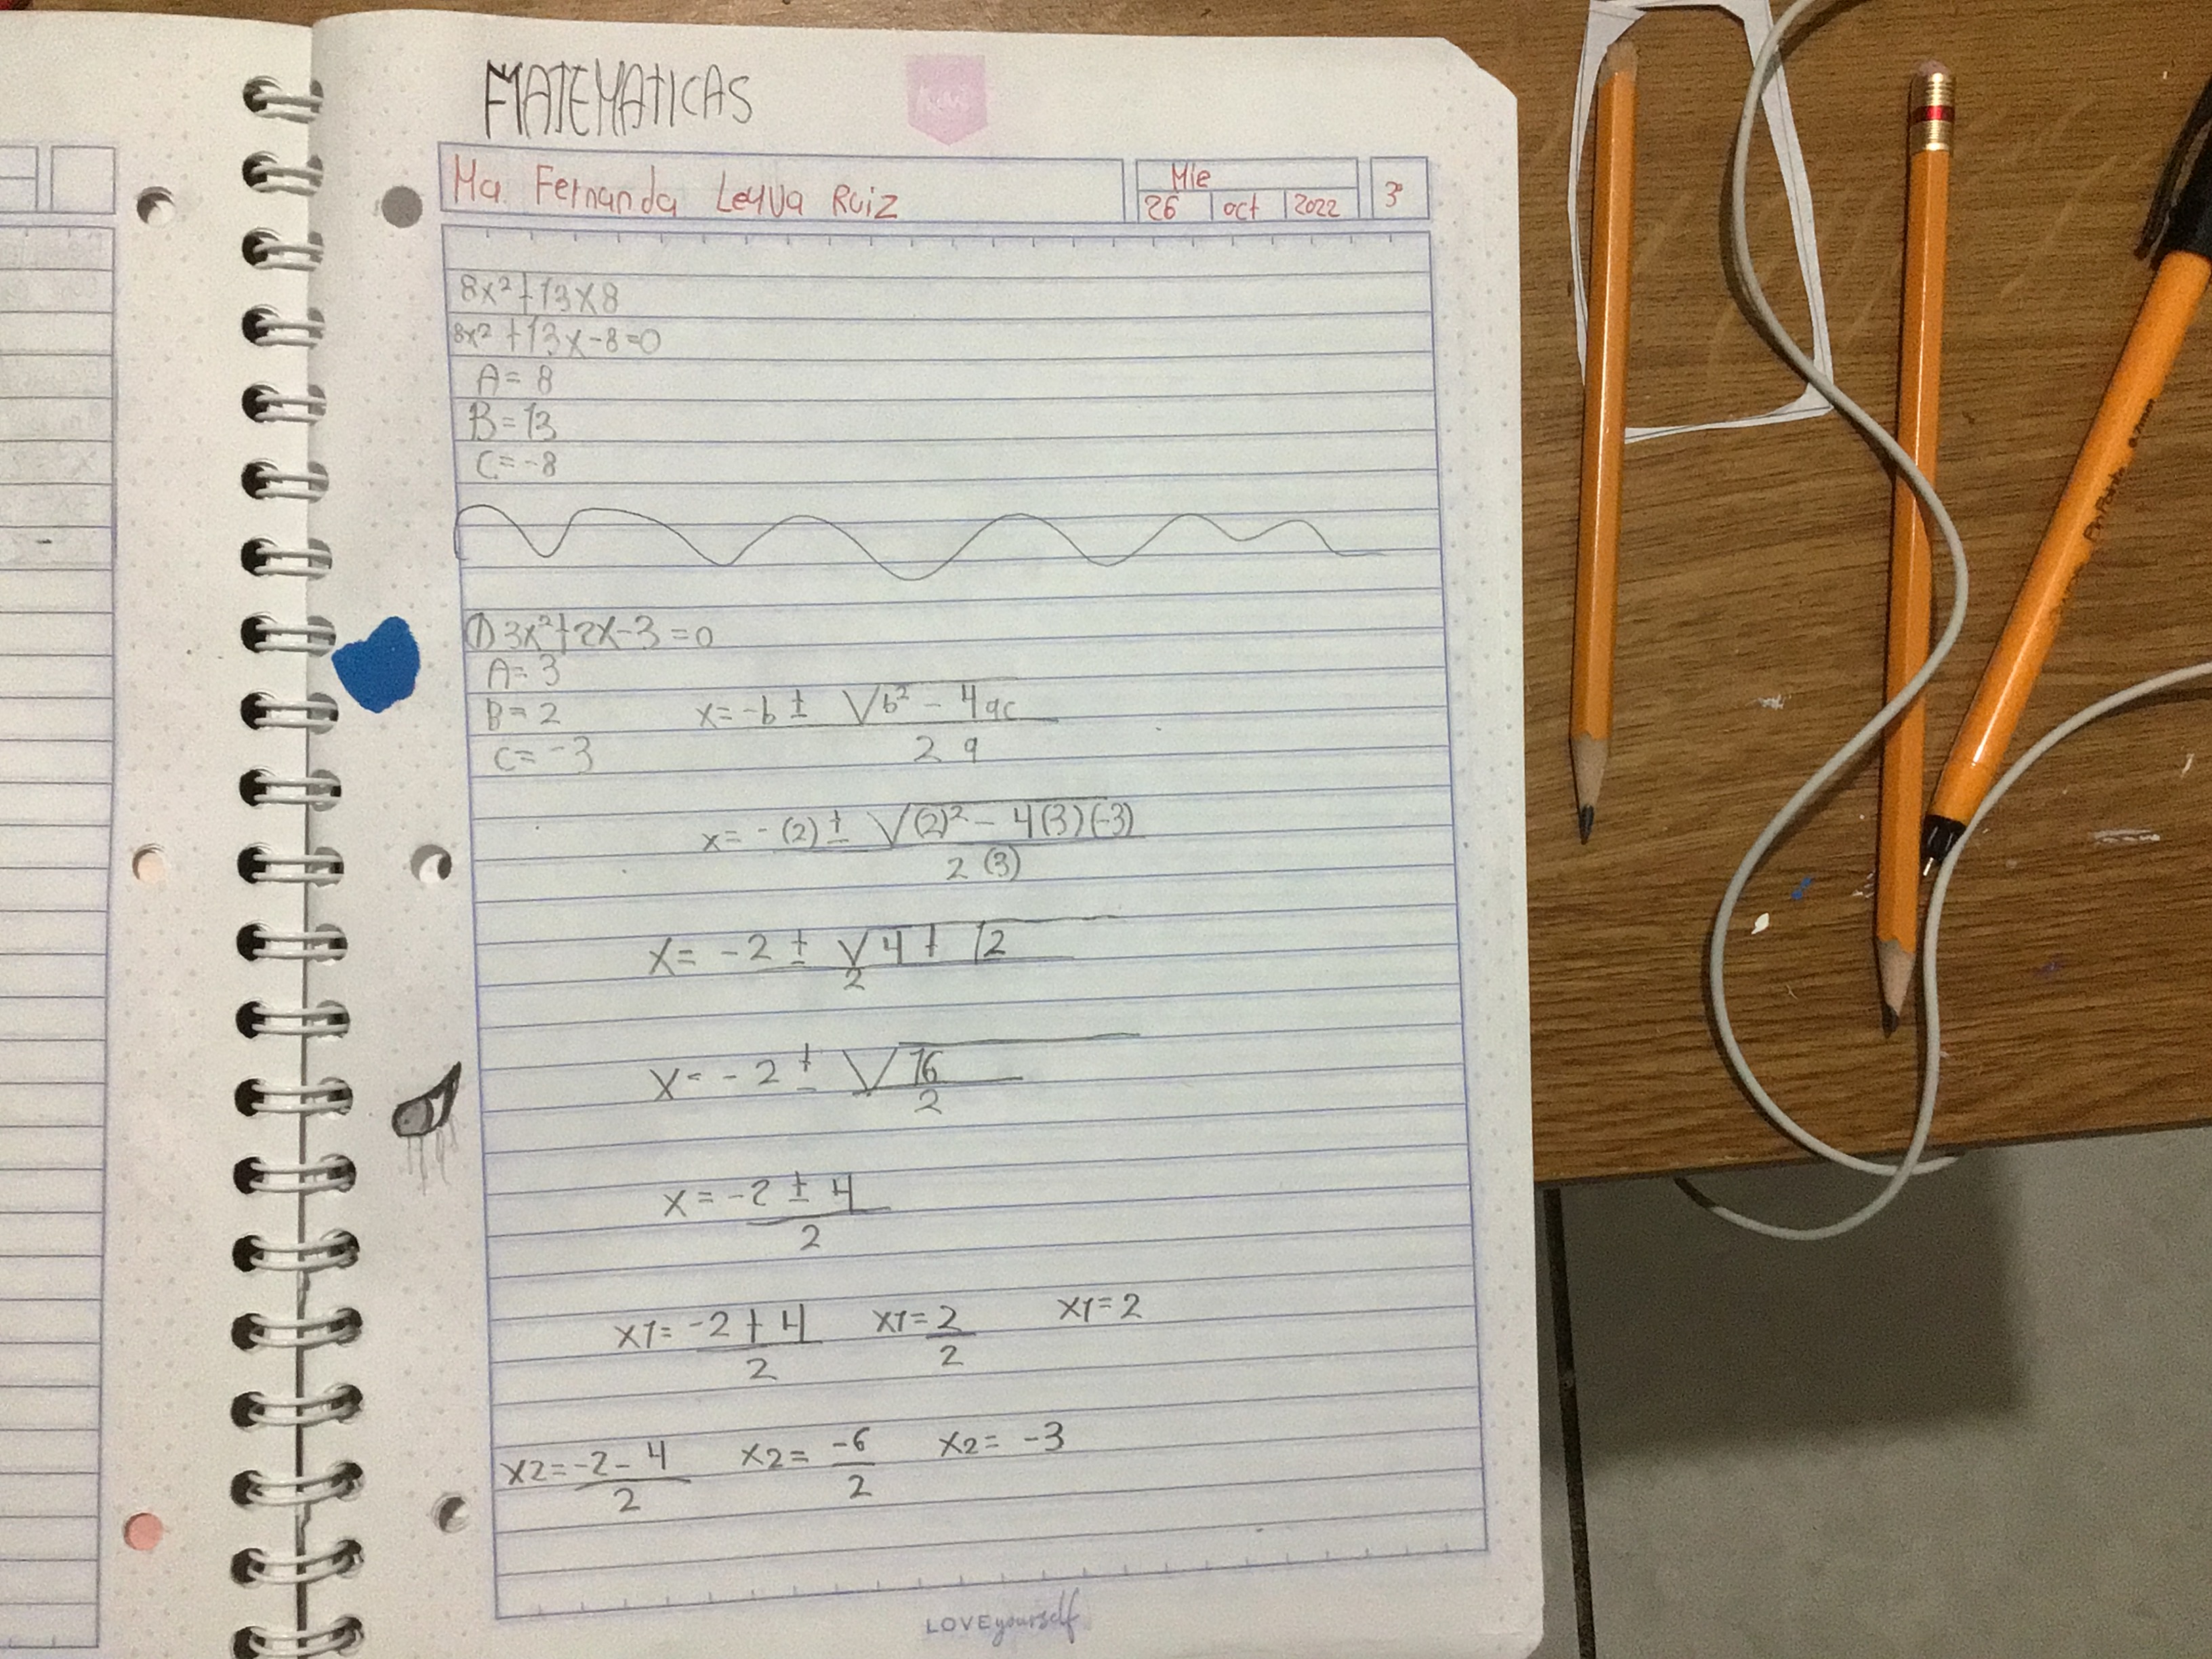 MATEMATICAS
Ma. Fernanda Leyva Ruiz
Mie
26 oct 2022
3°
8x²+13x8
8x²+13x-8=0
A=8
B=13
C=-8
1) 3x²+2x-3=0
A=3
B=2
C=-3
x=-b ± √b² - 4ac
2a
x= -(2) ± √(2)² - 4(3)(-3)
2(3)
x= -2 ± √4 + 12
2
x= -2 ± √16
2
x= -2 ± 4
2
x1= -2 + 4 x1= 2 x1=2
2 2
x2= -2 - 4 x2= -6 x2= -3
2 2
LOVE yourself